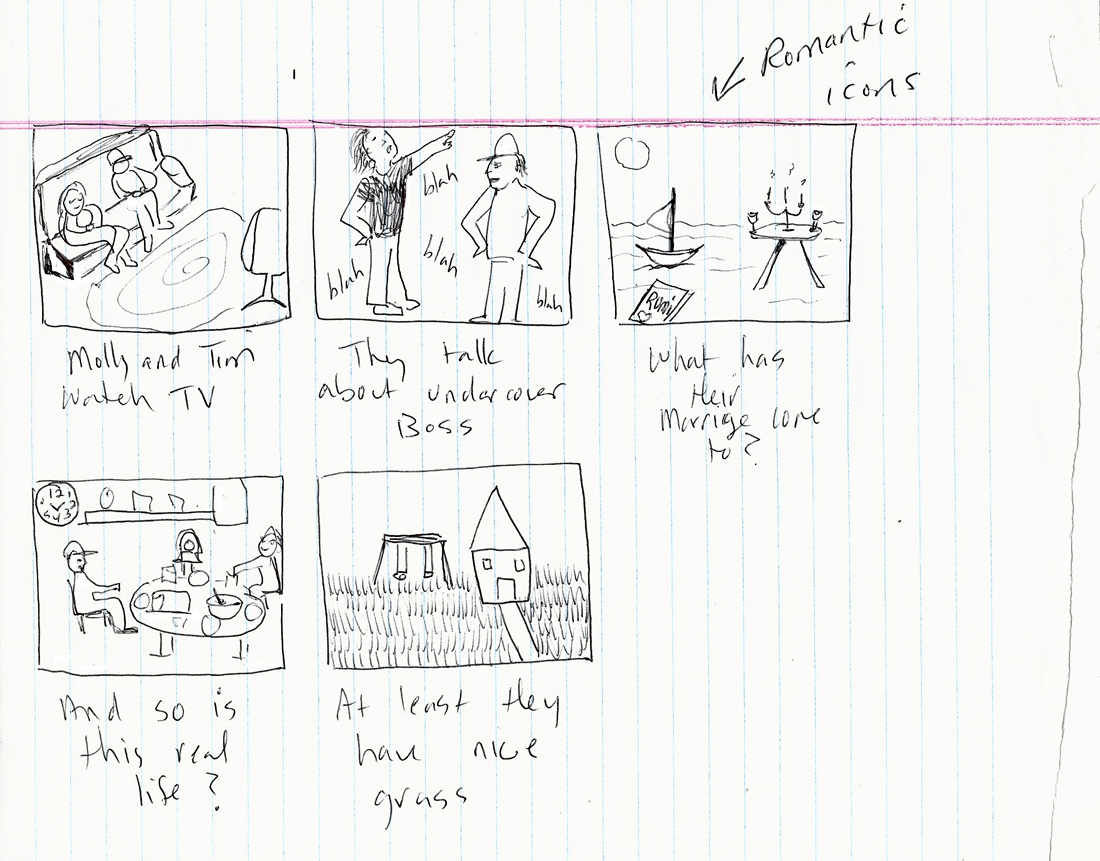 Romantic
icons
blah
blah
blah
blah
Rumi
Molly and Tim
watch TV
They talk
about undercover
Boss
What has
their
Marrige come
to?
12
And so is
this real
life?
At least they
have nice
grass